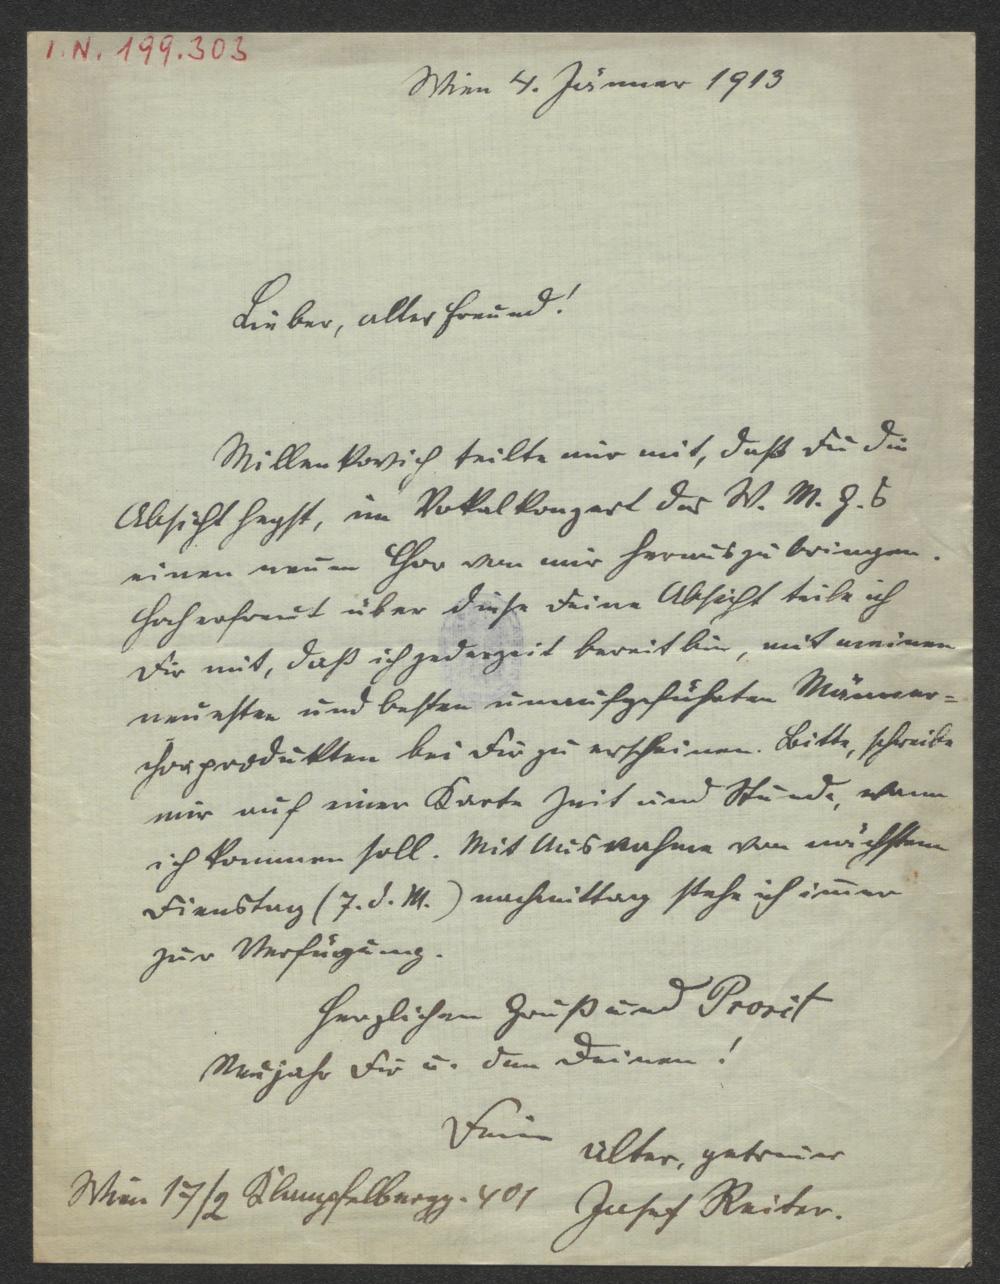 I.N. 199.303
Wien 4. Jänner 1913
Lieber, alter Freund!
Millenkovich teilte mir mit, daß Du die
Absicht hegst, im Vokalkonzert des W. M. G. V
einen neuen Chor von mir herauszubringen.
Hocherfreut über diese Deine Absicht teile ich
Dir mit, daß ich jederzeit bereit bin, mit meinen
neuesten und besten unaufgeführten Männer-
chorprodukten bei Dir zu erscheinen. Bitte, schreibe
mir auf einer Karte Zeit und Stunde, wann
ich kommen soll. Mit Ausnahme von nächstem
Dienstag (7. d. M.) nachmittag stehe ich immer
zur Verfügung.
Herzlichen Gruß und Prosit
Neujahr Dir u. den Deinen!
Dein
alter, getreuer
Wien 17/2 Klampfelbergg. 401 Josef Reiter.